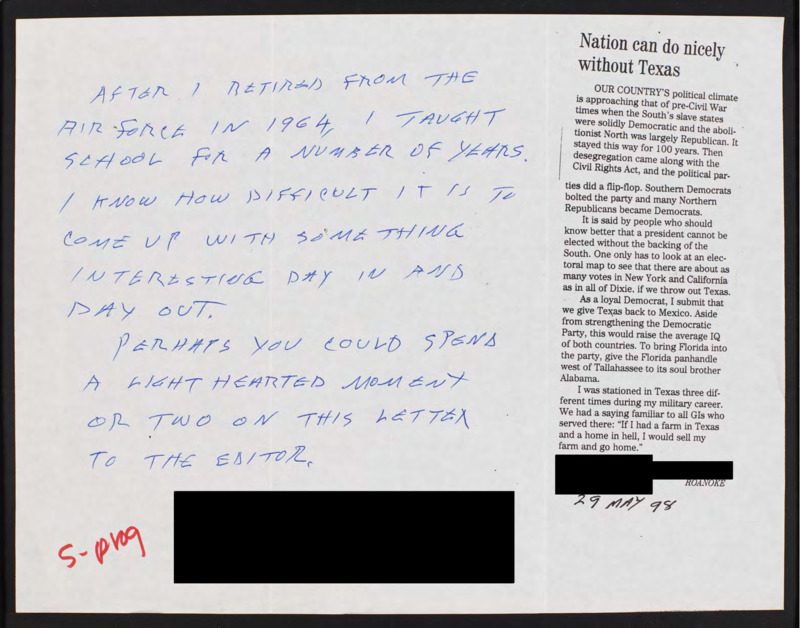 AFTER I RETIRED FROM THE
AIR FORCE IN 1964, I TAUGHT
SCHOOL FOR A NUMBER OF YEARS.
I KNOW HOW DIFFICULT IT IS TO
COME UP WITH SOMETHING
INTERESTING DAY IN AND
DAY OUT.
PERHAPS YOU COULD SPEND
A LIGHT HEARTED MOMENT
OR TWO ON THIS LETTER
TO THE EDITOR.
S-prog
Nation can do nicely
without Texas
OUR COUNTRY'S political climate
is approaching that of pre-Civil War
times when the South's slave states
were solidly Democratic and the aboli-
tionist North was largely Republican. It
stayed this way for 100 years. Then
desegregation came along with the
Civil Rights Act, and the political par-
ties did a flip-flop. Southern Democrats
bolted the party and many Northern
Republicans became Democrats.
It is said by people who should
know better that a president cannot be
elected without the backing of the
South. One only has to look at an elec-
toral map to see that there are about as
many votes in New York and California
as in all of Dixie, if we throw out Texas.
As a loyal Democrat, I submit that
we give Texas back to Mexico. Aside
from strengthening the Democratic
Party, this would raise the average IQ
of both countries. To bring Florida into
the party, give the Florida panhandle
west of Tallahassee to its soul brother
Alabama.
I was stationed in Texas three dif-
ferent times during my military career.
We had a saying familiar to all GIs who
served there: "If I had a farm in Texas
and a home in hell, I would sell my
farm and go home."
ROANOKE
29 MAY 98